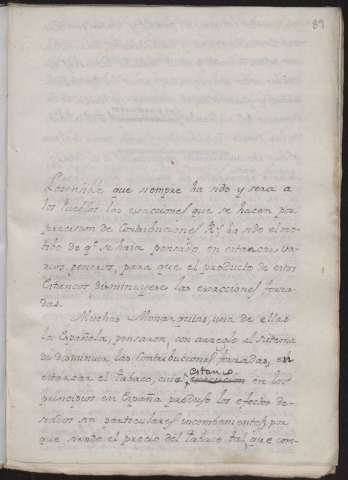 89
que siempre ha sido y sera a
los Pueblos las exacciones que se hacen por
precision de Contribuciones Rs. ha sido el mo-
tibo de qe. se haia pensado en estancar va-
rios generos, para que el producto de estos
Estancos disminuyese las exacciones forza-
das.
Muchas Monarquias, una de ellas
la Española, pensaron, con arreglo al sistema
de disminuir las Contribuciones forzadas, en
estancar el Tabaco, cuio
estanco
en los
principios en España produjo los efectos de-
seados sin particulares incombenientes por
que siendo el precio del tabaco tal, que com-